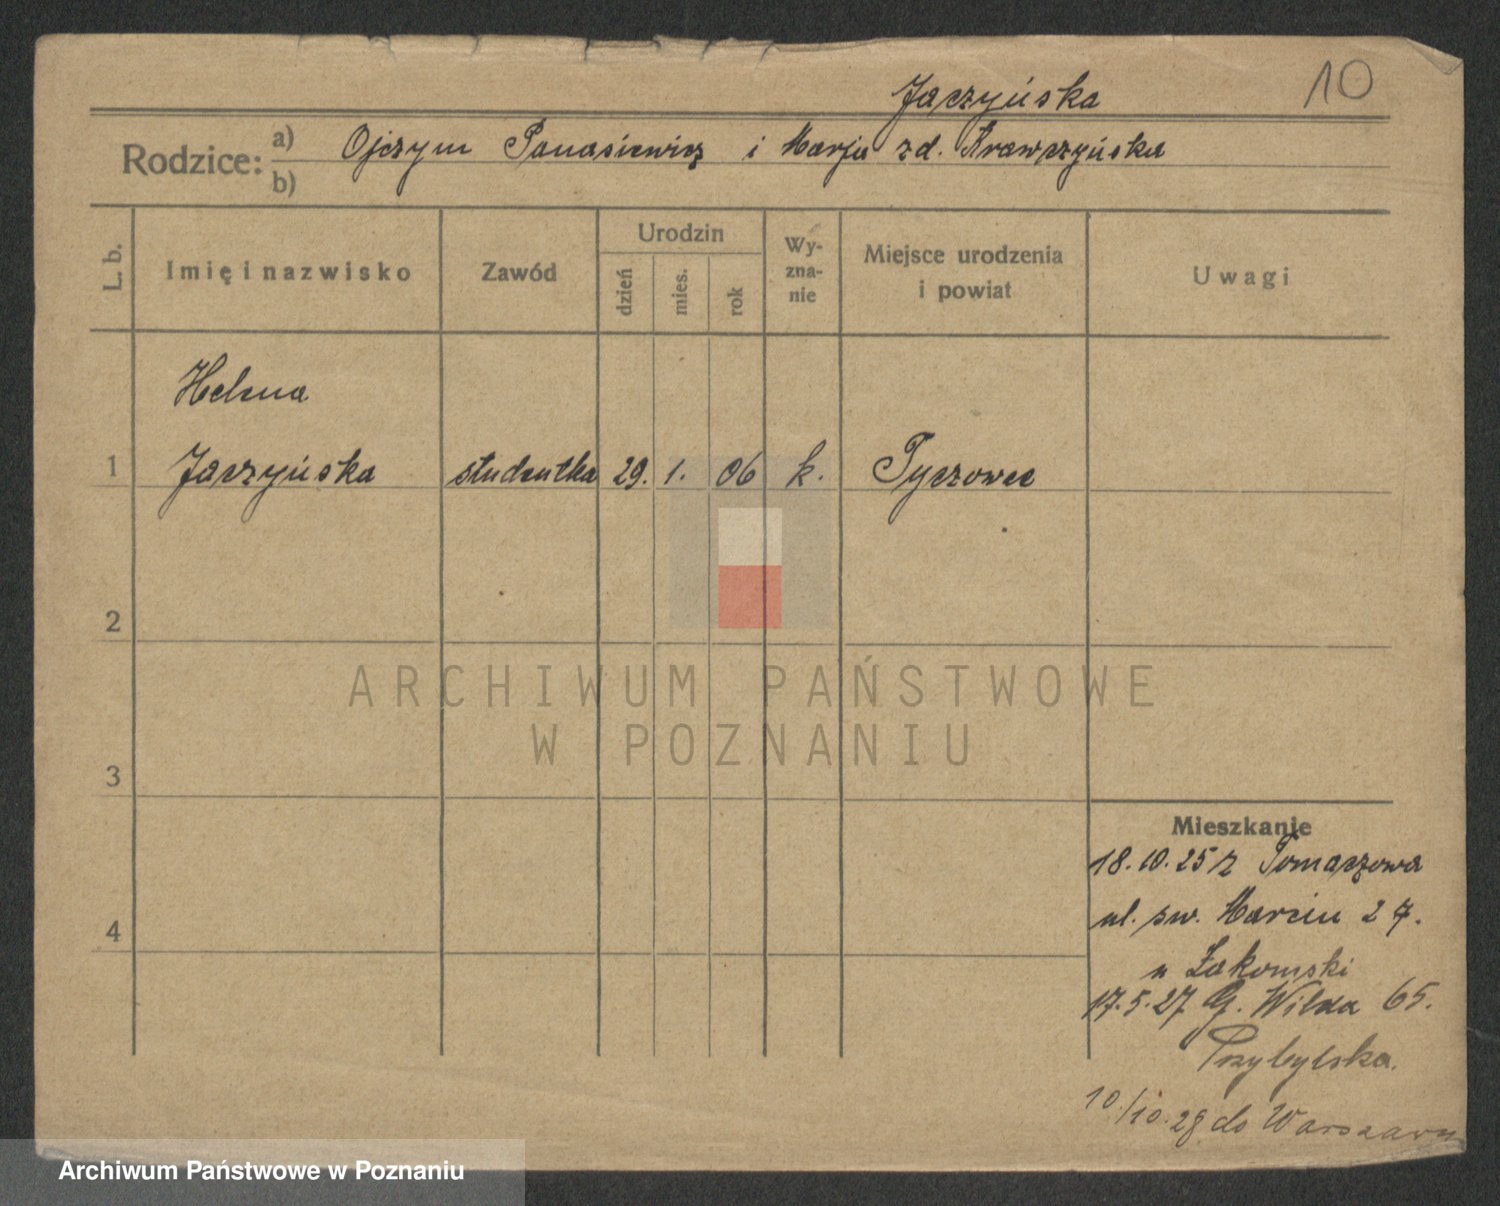 Jaczyńska
10
Rodzice: a) Ojczym Panasiewicz i Marja zd. Krawczyńska
b)
L. b.
Imię i nazwisko
Zawód
Urodzin
dzień
mies.
rok
Wy-
zna-
nie
Miejsce urodzenia
i powiat
Uwagi
Helena
1 Jaczyńska studentka 29. 1. 06 k. Tyczowce
2
ARCHIWUM PAŃSTWOWE
W POZNANIU
3
Mieszkanie
18.10.25 z Tomaszowa
4 ul. św. Marcin 27.
u Łakomski
17.5.27 G. Wilda 65.
Przybylska.
10/10.28 do Warszawy
Archiwum Państwowe w Poznaniu